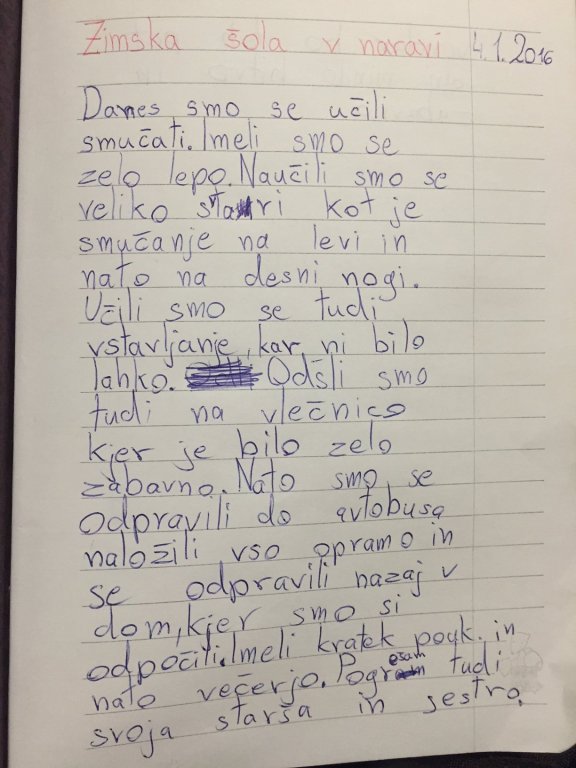 Zimska šola v naravi 4.1.2016
Danes smo se učili
smučati. Imeli smo se
zelo lepo. Naučili smo se
veliko stvari kot je
smučanje na levi in
nato na desni nogi.
Učili smo se tudi
vstavljanje, kar ni bilo
lahko. Odšli smo
tudi na vlečnico
kjer je bilo zelo
zabavno. Nato smo se
odpravili do avtobusa
naložili vso opramo in
se odpravili nazaj v
dom, kjer smo si
odpočili. Imeli kratek pouk in
nato večerjo. Pogresam tudi
svoja starša in sestro.